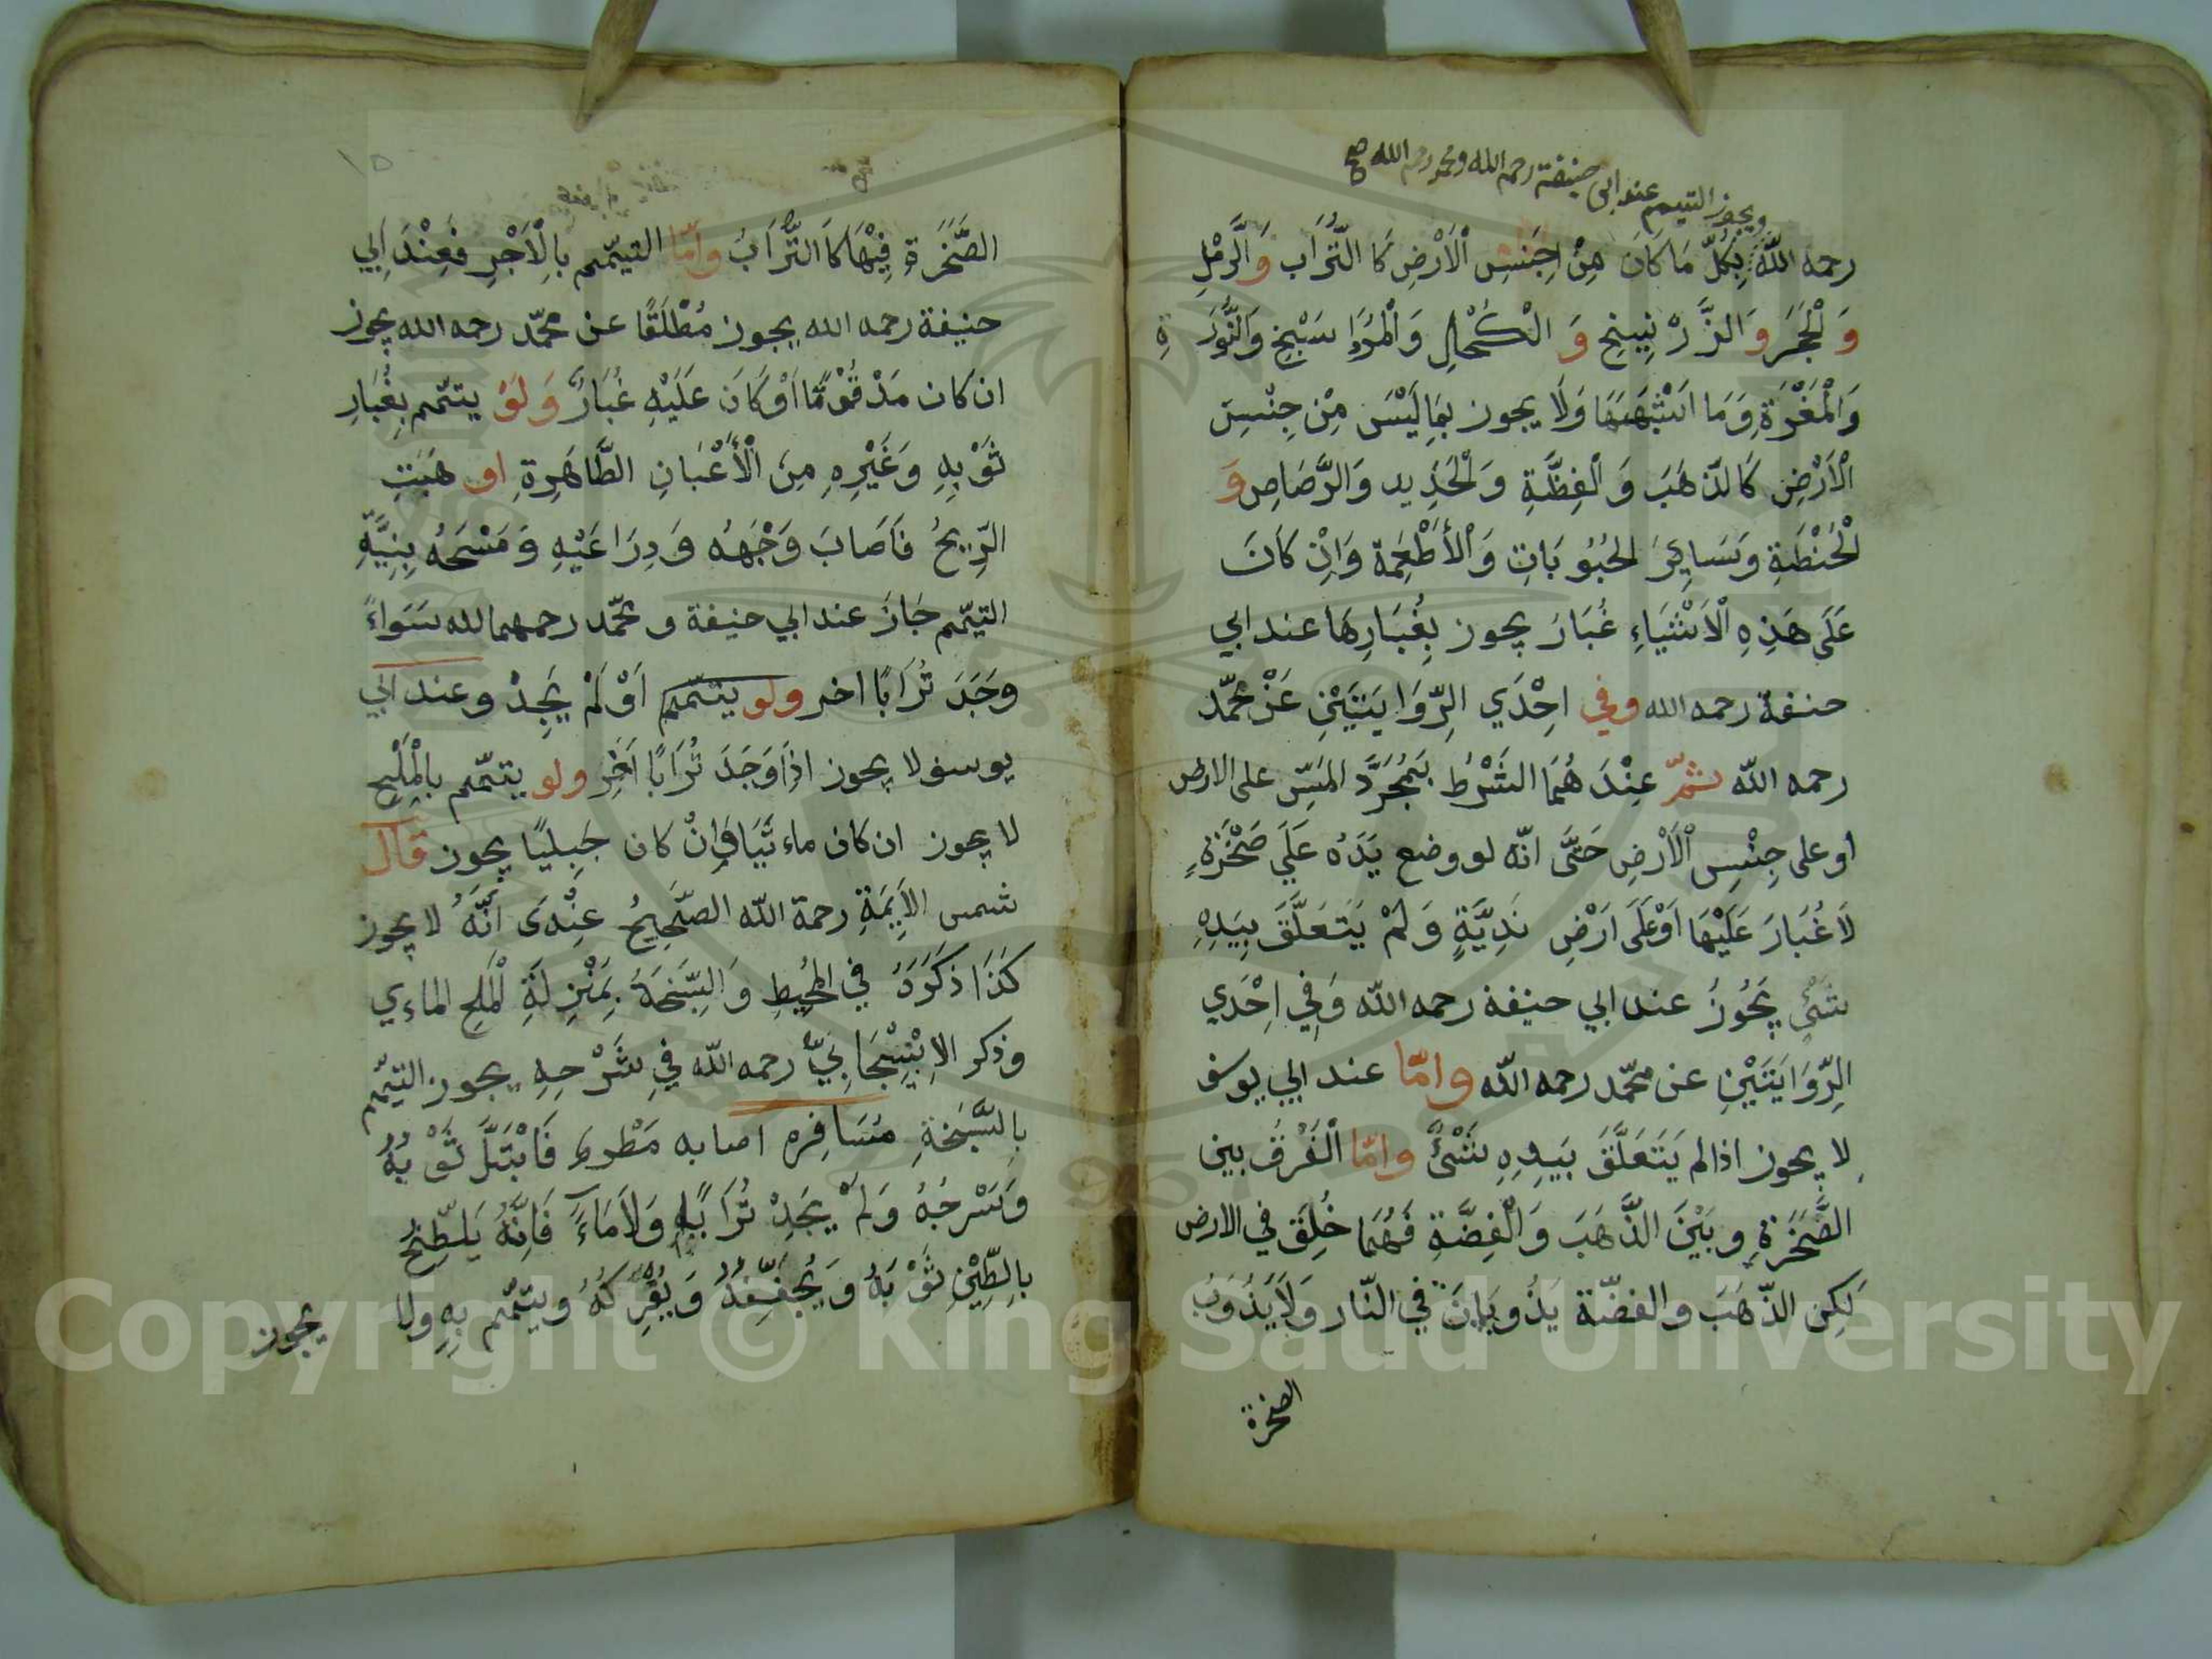 ويجوز التيمم عند ابى حنيفة رحمه الله ومحمد رحمه الله صح
رحمه الله بِكُلِّ مَا كَانَ مِنْ جِنسِ اْلاَرْضِ كَا التُّرَاب وَالرَّمْلِ
وَ لْحَجَر وَالزَّرْنِينِحِ وَ الْكُحْلِ وَالْمرْدَاسَنْجِ وَالنُّورَةِ
وَالْمَغْرَةِ وَمَا اَشْبَهَهَا وَلَا يجوز بِمَا لَيْسَ مِنْ جِنْسِ
الْاَرْضِ كَا لذَّهَبَ وَ الْفِظَّةِ وَ لْحَدِيد وَالرَّصَاصِ وَ
لْحُنْطَةِ وَسَايِرَ الحُبُوبَاتِ وَالْأَطْعِمَة وَاِنْ كَانَ
عَلَى هَذِهِ الْاَشْيَاءِ غُبَارَ يجوز بِغُبَارِهَا عند ابي
حنفة رحمه الله وفي اِحْدَي الرِّوَايَتَيْنِ عَنْ محمّد
رحمه الله ثمّ عِنْدَ هُمَا الشَّرْطُ بِمُجَرَّدَ المَسِّ على الارض
او على جِنْسِ الْاَرْضِ حَتَّى انّه لو وضع يَدَهُ عَلَي صَخْرَةٍ
لَا غُبَارَ عَلَيْهَا اَوْعَلَى اَرْضٍ نَدِيَّةٍ وَلَمْ يَتَعَلَّقَ بِيَدِهِ
شَىْءٌ يَجُوزُ عند ابي حنيفة رحمه الله وَفِي اِحْدَي
الرِّوَايَتَيْنِ عن محمّد رحمه الله وامّا عند ابي يوسف
لا يجوز اذا لم يَتَعَلَّقَ بِيَدِهِ شَىْءٌ وامّا الْفَرْقُ بين
الصَّخْرَةِ وبَيْنَ الذَّهَبَ وَالْفِضَّةِ فَهُمَا خُلِقَ في الارض
لَكِن الذّهَبَ والفضّة يَذُوبَانَ في النّار وَلَا يَذُوَبُ
الصخرة
١٥
الصَّخَرَةِ فِيْهَا كَا التُّرَابُ وامّا التيمّم بِالْاَجُرِ فَعِنْدَ اَبِي
حنيفة رحمه الله يجوز مُطْلَقًا عن محمّد رحمه الله يجوز
ان كان مَدْقُوْقًا اَوْ كَانَ عَلَيْهِ غُبَارٌ وَلَوْ يتمّم بِغُبَارِ
ثَوْبِهِ وَغَيْرِهِ مِنَ الْأَعْيَانِ الطَّاهِرَةِ او هَبَتِ
الرِّيحُ فَاَصَابَ وَجْهَهُ وَ دِرَاعَيْهِ وَمَسْحَهُ بِنِيَّةِ
التيمّم جَازَ عند ابي حنيفة و محمّد رحمهما الله سَوَاءً
وَجَدَ تُرَابًا اخر ولو يتمّم اَوْ لَمْ يَجِدْ وعند ابي
يوسف لا يجوز اِذَا وَجَدَ تُرَابًا آخَرِ ولو يتمّم بِالْمِلْحِ
لا يجوز ان كان ماء ئيًّا وَاِنْ كان جَبِليًا يجوز قال
شمس الاَيِمَةِ رحمة الله الصَّحِيحُ عِنْدَى اَنَّهُ لا يجوز
كَذَا ذكَرَهُ في المُحِيطِ وَالسَّبَخَةُ بِمَنْزِلَةِ الْمِلح الماءِي
وذكر الاِسْبِيجَابِيّ رحمه الله في شَرْحِهِ يجوز التيمّم
بِالسَّبَخَةِ مُسَافِره اصابه مَطْر فَابْتَلَّ ثَوْبُهُ
وَسَرْجُهُ وَلَمْ يَجِدْ تُرَابًا وَلاَ مَاءً فَاِنَّهُ يَلطِّخُ
بِالطِّيْنِ ثَوْبَهُ وَيُجَفِّفُهُ وَيُفْرِكُهُ ويتمّم بِهِ ولا
يجوز
Copyright © King Saud University